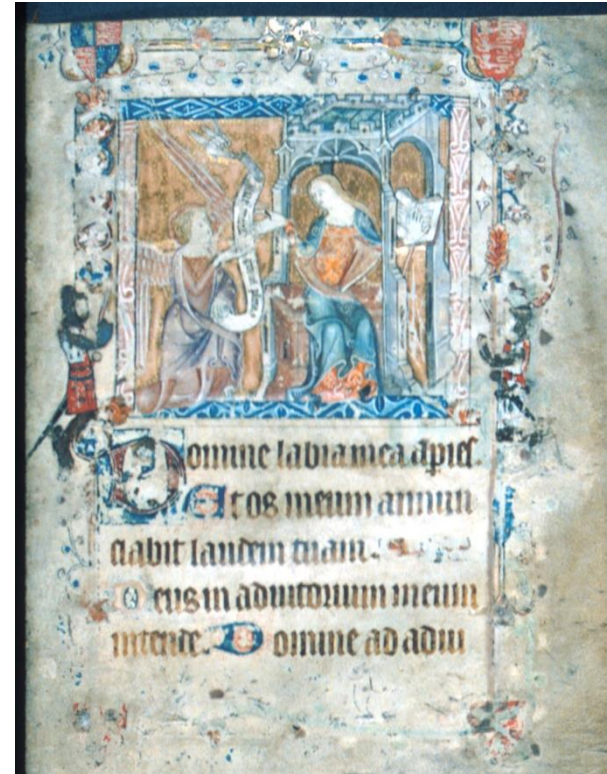 Domine labia mea apies.
Et os meum annun
ciabit laudem tuam.
Deus in adiutorium meum
intende. Domine ad adiu